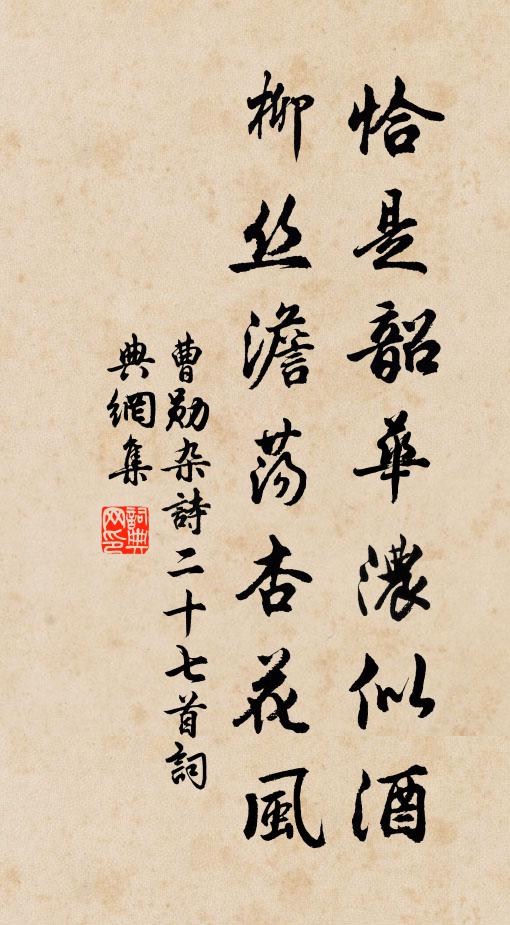 恰是韶華濃似酒
柳丝澹荡杏花風
曹勋杂詩二十七首詞
典網集
詞典网印